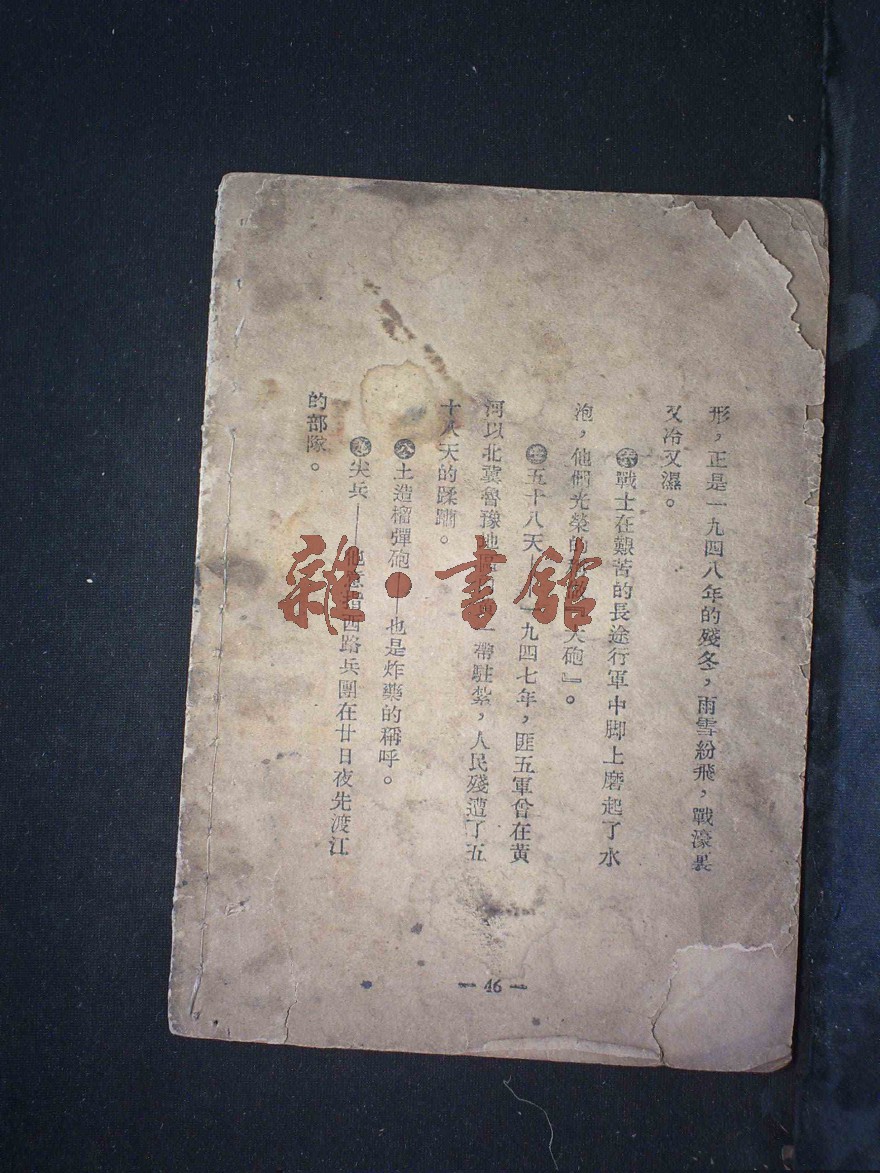 形，正是一九四八年的殘冬，雨雪紛飛，戰濠裏
又冷又濕。
㊅戰士在艱苦的長途行軍中脚上磨起了水
泡，他們光榮的『大砲』。
㊆五十八天——一九四七年，匪五軍曾在黃
河以北冀魯豫一帶駐紮，人民殘遭了五
十八天的蹂躪。
㊇土造榴彈砲——也是炸藥的稱呼。
㊈尖兵——西路兵團在廿日夜先渡江
的部隊。
— 46 —
雜·書館